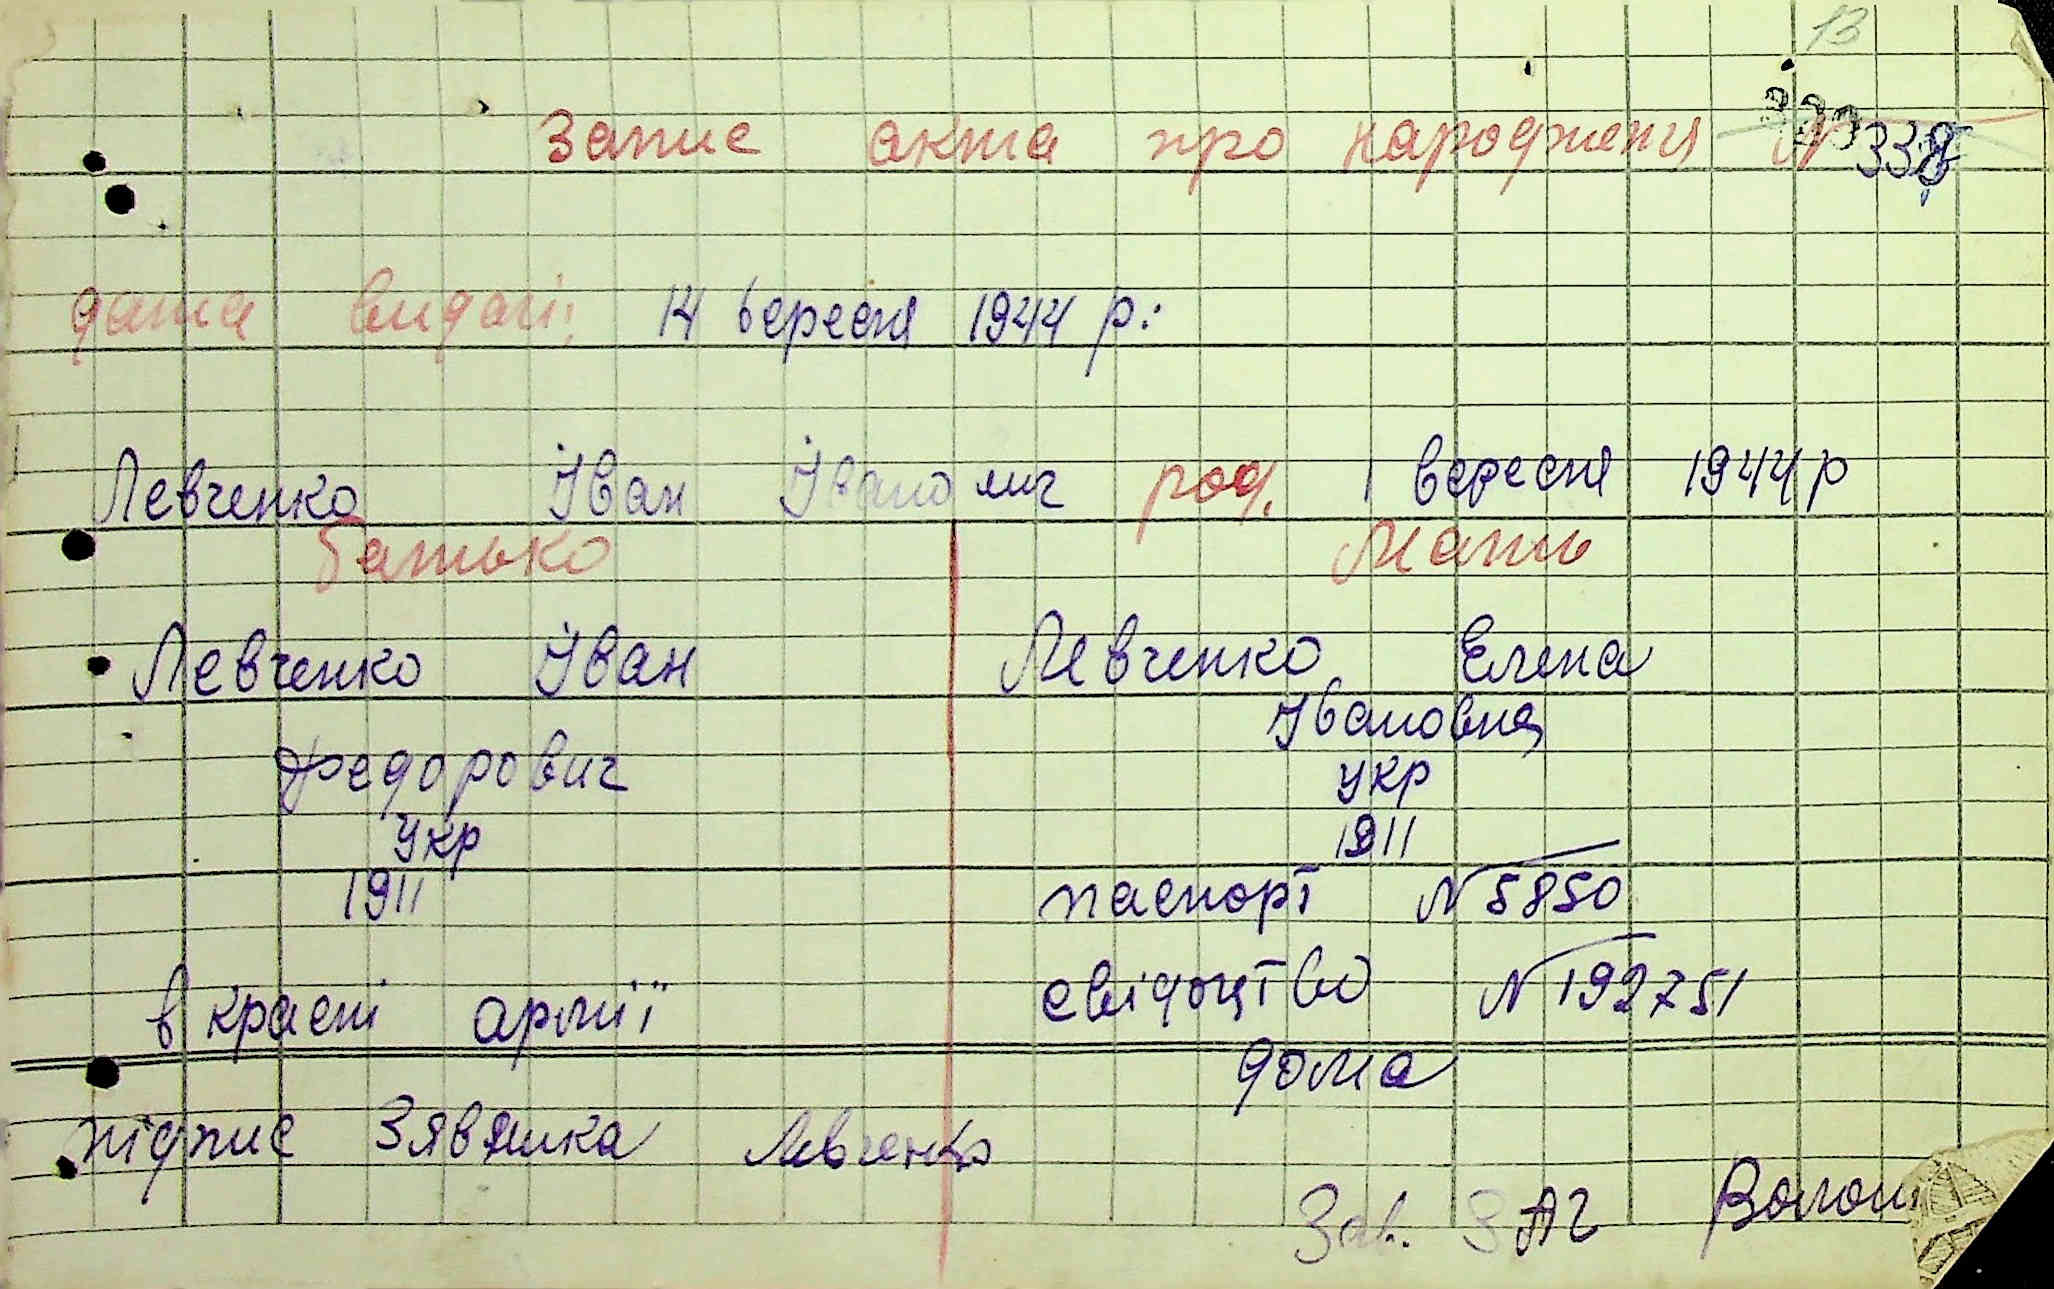 13
Запис акта про народженя № 338
дата видачі: 14 вересня 1944 р.
Левченко Іван Іванович род. 1 вересня 1944 р
батько Мать
Левченко Іван Левченко Елена
Івановна
Федорович укр
укр 1911
1911 паспорт № 5850
в красні армії свідоцтво № 192751
дома
підпис Зявника Левченко
Зав. ЗАГ